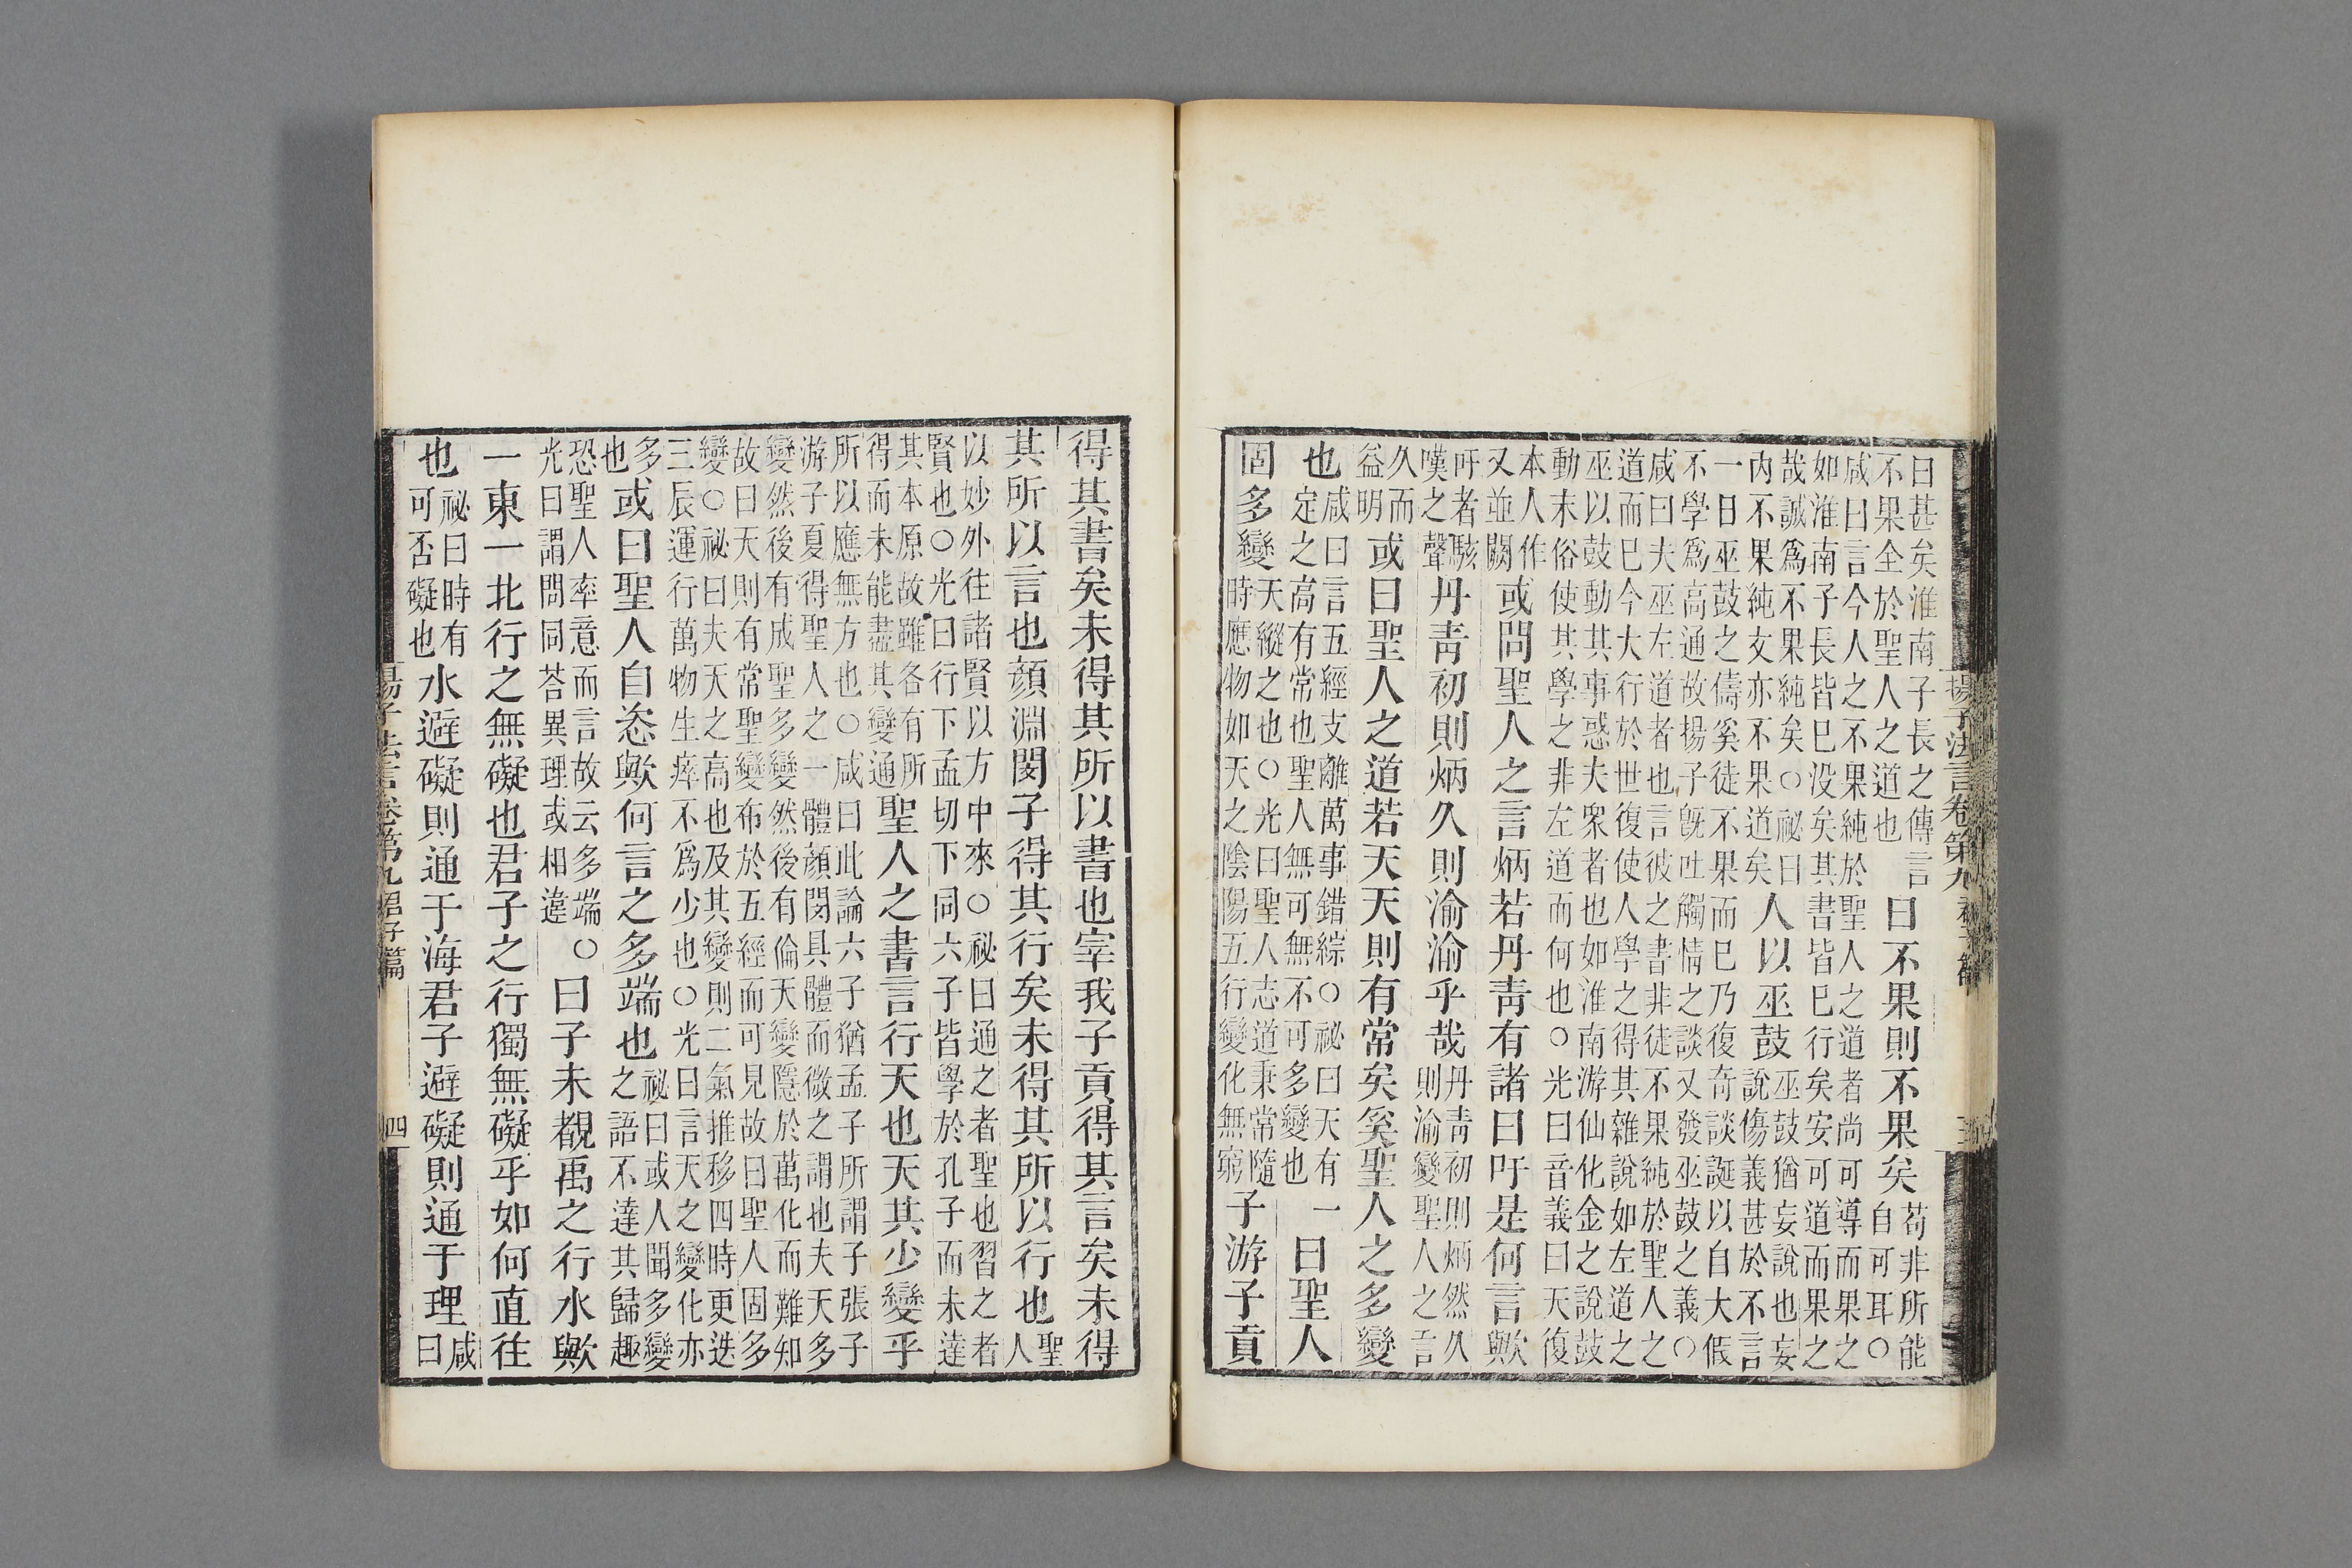 揚子法言卷第九
曰甚矣淮南子長之傳言
不果全於聖人之道也
曰不果則不果矣
苟非所能
自可耳○
咸曰言今人之不果純於聖人之道者尚可導而果之
如淮南子長皆已没矣其書皆已行矣安可道而果之
哉誠爲不果純矣○祕曰
内不果純文亦不果道矣
人以巫鼓
巫鼓猶妄說也妄
說傷義甚於不言
一曰巫鼓之儔奚徒不果而已乃復奇談誕以自大假
不學爲高通故揚子旣吐觸情之談又發巫鼓之義○
咸曰夫巫左道者也言彼之書非徒不果純於聖人之
道而已今大行於世復使人學之得其雜說如左道之
巫以鼓動其事惑夫衆者也如淮南游仙化金之說鼓
動末俗使其學之非左道而何也○光曰音義曰天復
本人作
又並闕
或問聖人之言炳若丹青有諸曰吁是何言歟
吁者駭
嘆之聲
丹青初則炳久則渝渝乎哉
丹青初則炳然久
則渝變聖人之言
久而
益明
或曰聖人之道若天天則有常矣奚聖人之多變
也
咸曰言五經支離萬事錯綜○祕曰天有
定之高有常也聖人無可無不可多變也
曰聖人
固多變
天縱之也○光曰聖人志道秉常隨
時應物如天之陰陽五行變化無窮
子游子貢
得其書矣未得其所以書也宰我子貢得其言矣未得
其所以言也顏淵閔子得其行矣未得其所以行也
聖
人
以妙外往諸賢以方中來○祕曰通之者聖也習之者
賢也○光曰行下孟切下同六子皆學於孔子而未達
其本原故雖各有所
得而未能盡其變通
聖人之書言行天也天其少變乎
所以應無方也○咸曰此論六子猶孟子所謂子張子
游子夏得聖人之一體顏閔具體而微之謂也夫天多
變然後有成聖多變然後有倫天變隱於萬化而難知
故曰天則有常聖變布於五經而可見故曰聖人固多
變○祕曰夫天之高也及其變則二氣推移四時更迭
三辰運行萬物生瘁不爲少也○光曰言天之變化亦
多
也
或曰聖人自恣歟何言之多端也
祕曰或人聞多變
之語不達其歸趣
恐聖人率意而言故云多端○
光曰謂問同荅異理或相違
曰子未覩禹之行水歟
一東一北行之無礙也君子之行獨無礙乎如何直往
也
祕曰時有
可否礙也
水避礙則通于海君子避礙則通于理
咸
曰
揚子法言卷第九 君子篇 四